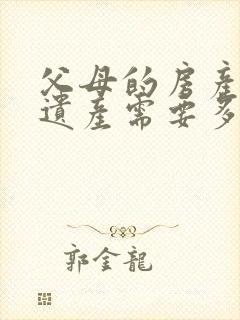 父母的房產
遺產需要多
郭金龍